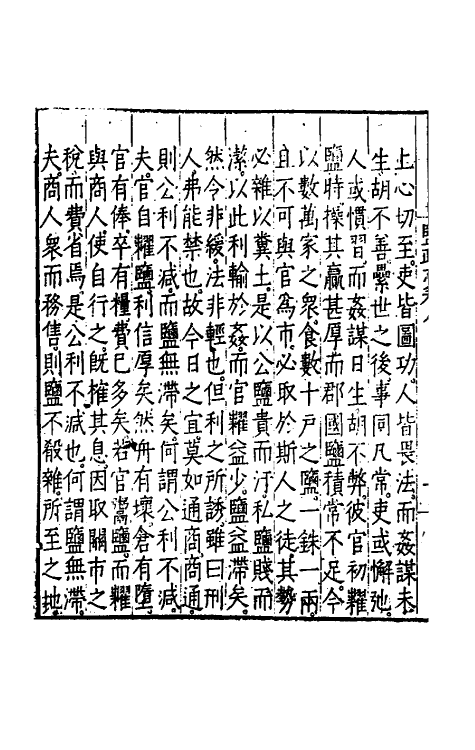 上心切至吏皆圖功人皆畏法而姦謀未
生胡不善纍世之後事同凡常吏或懈弛
人或慣習而姦謀日生胡不弊彼官初糶
鹽時操其贏甚厚而郡國鹽積常不足今
以數萬家之衆食數十戶之鹽一銖一兩
且不可與官為市必取於斯人之徒其勢
必雜以糞土是以公鹽貴而汙私鹽賤而
潔以此利輸於姦而官糶益少鹽益滯矣
然令非緩法非輕也但利之所誘雖曰刑
人弗能禁也故今日之宜莫如通商商通
則公利不減而鹽無滯矣何謂公利不減
夫官自糶鹽利信厚矣然舟有壞倉有墮
官有俸卒有糧費已多矣若官鬻鹽而糶
與商人使自行之既摧其息因取關市之
稅而費省焉是公利不減也何謂鹽無滯
夫商人衆而務售則鹽不殺雜所至之地